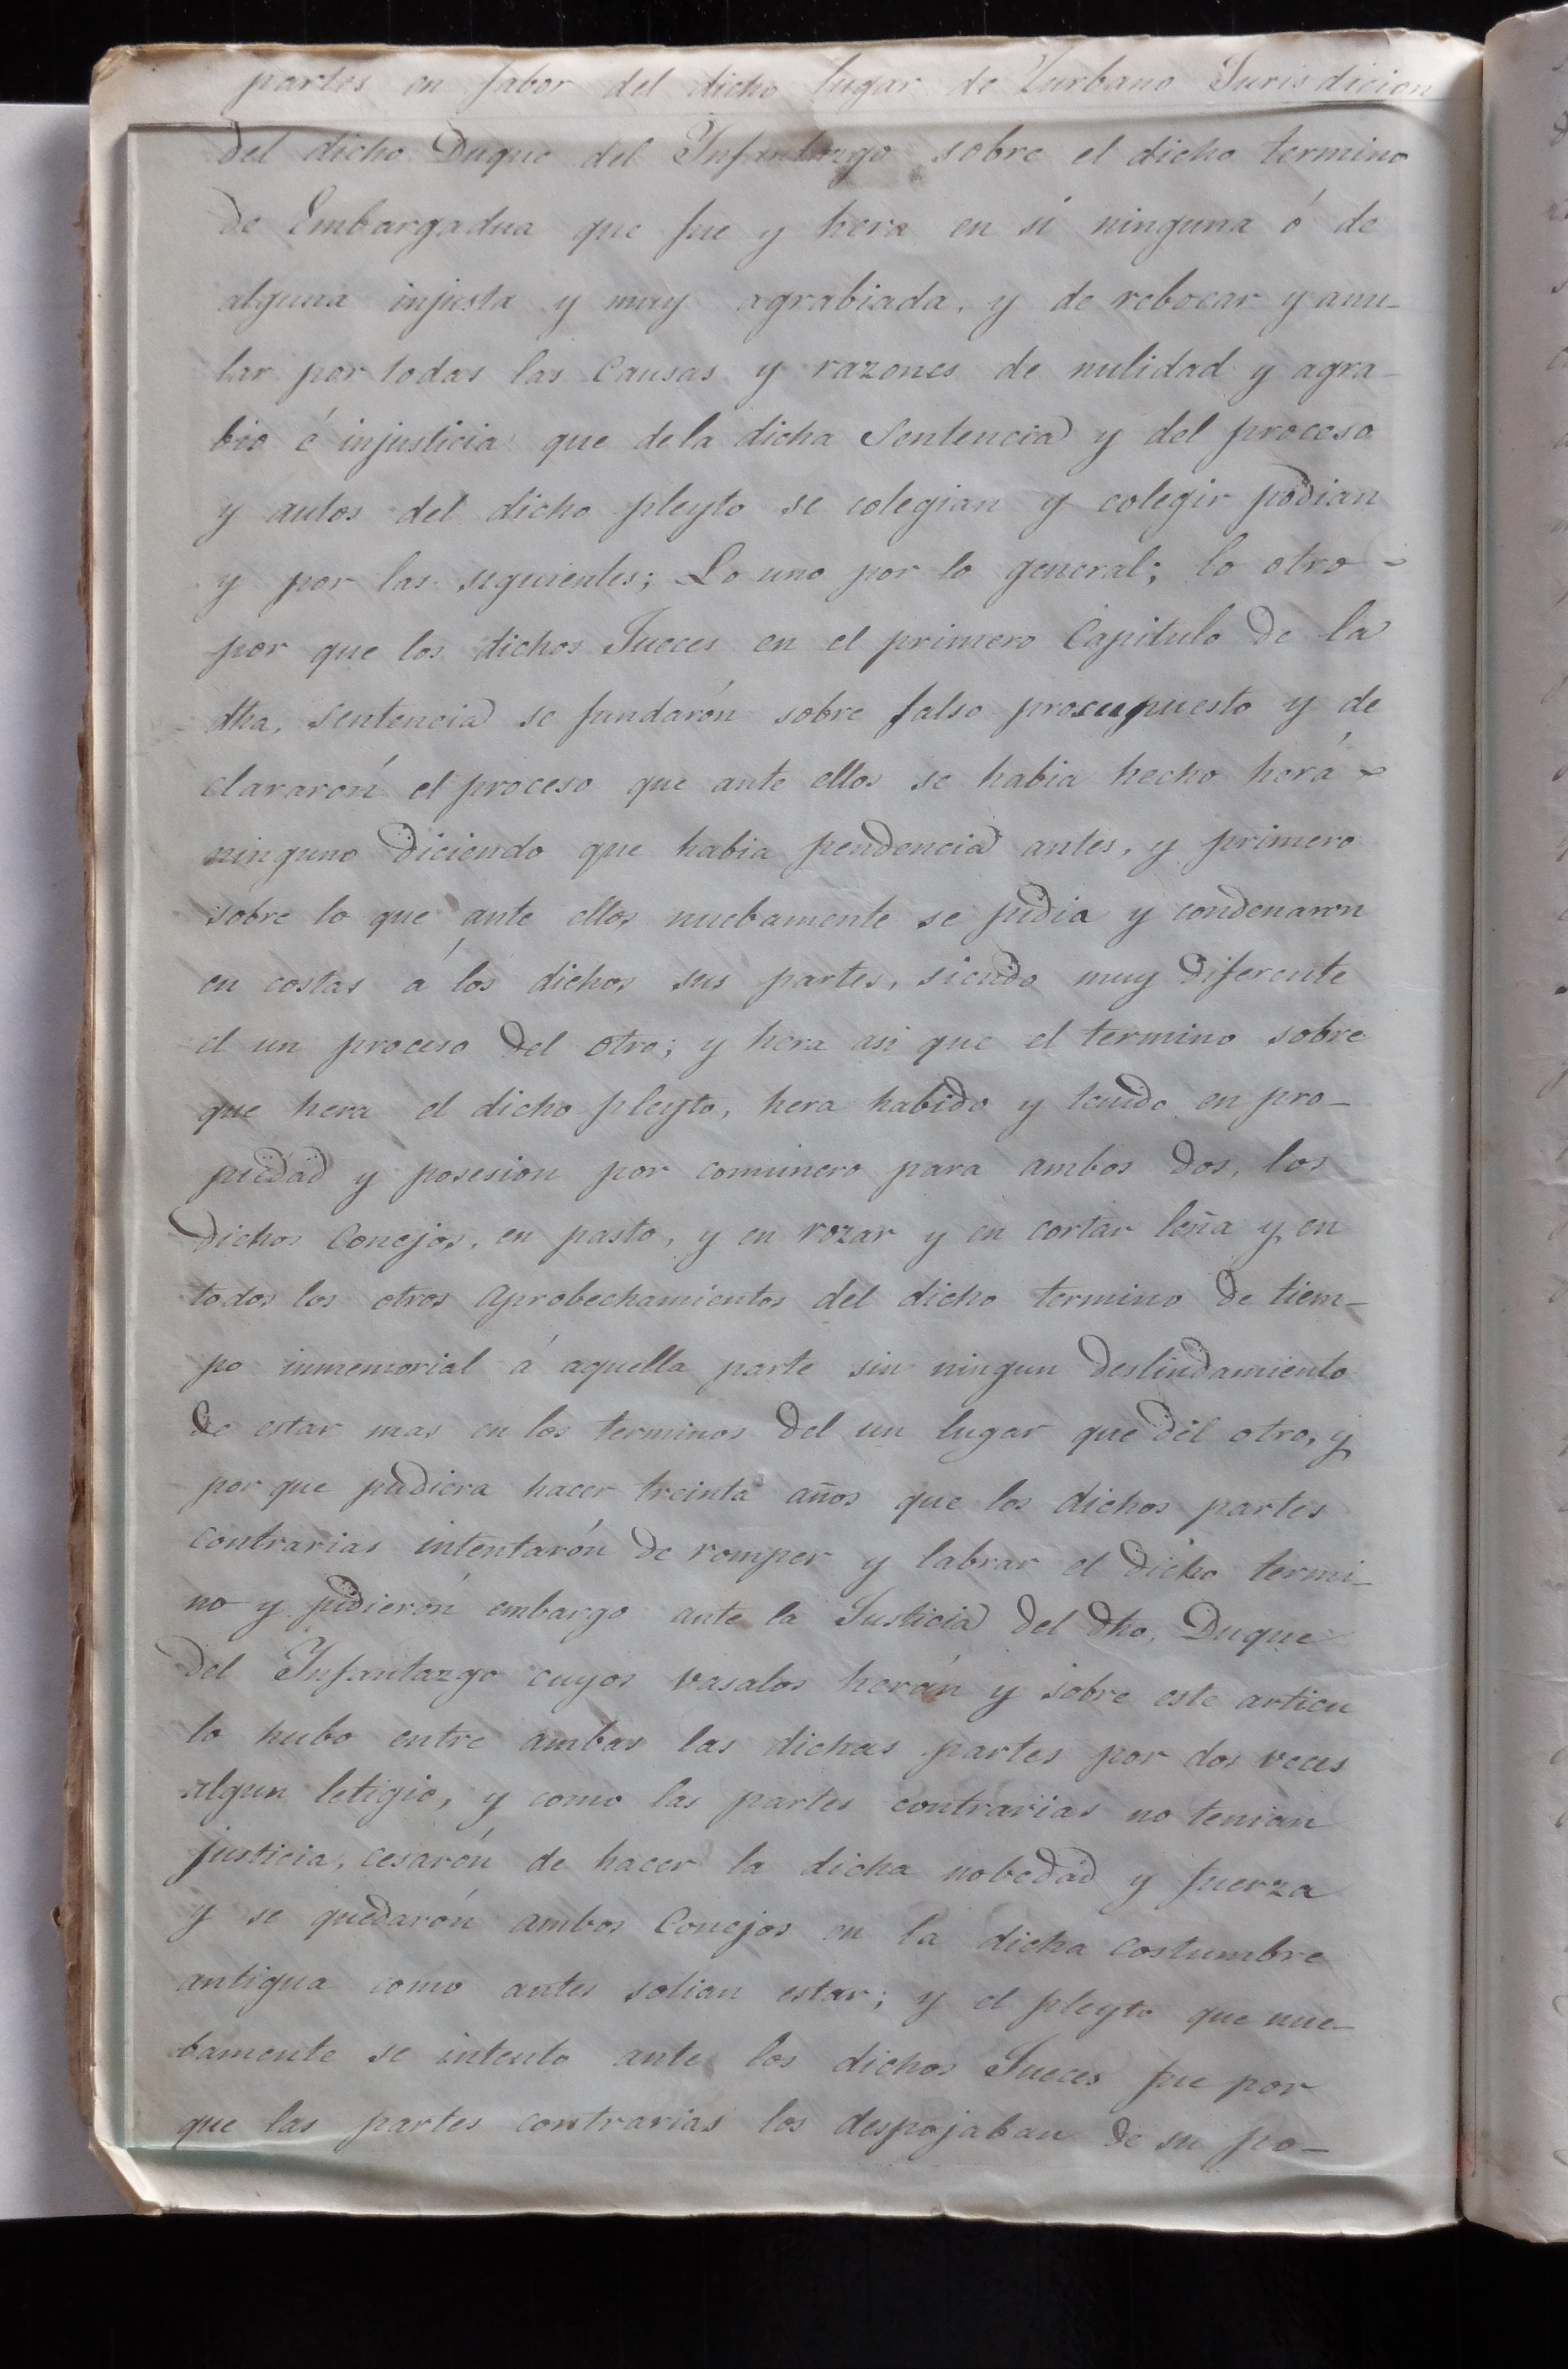 partes en fabor del dicho lugar de Zurbano Jurisdicion
del dicho Duque del Infantazgo sobre el dicho termino
de Embargadua que fue y hera en sí ninguna ó de
alguna injusta y muy agrabiada, y de rebocar y anu-
lar por todas las Causas y razones de nulidad y agra-
bio é injusticia que de la dicha Sentencia y del proceso
y autos del dicho pleyto se colegian y colegir podian
y por las siguientes; Lo uno por lo general; lo otro -
por que los dichos Jueces en el primero Capitulo de la
dha, sentencia se fundarón sobre falso prosupuesto y de
clararón el proceso que ante ellos se habia hecho herá -
ninguno diciendo que habia pendencia antes, y primero
sobre lo que ante ellos nuebamente se pidia y condenaron
en costas á los dichos sus partes, siendo muy diferente
el un proceso del otro; y hera asi que el termino sobre
que hera el dicho pleyto, hera habido y tenido en pro-
piedad y posesion por comunero para ambos dos, los
dichos Concejos, en pasto, y en rozar y en cortar leña y en
todos los otros aprobechamientos del dicho termino de tiem-
po inmemorial á aquella parte sin ningun deslindamiento
de estar mas en los terminos del un lugar que del otro, y
por que pudiera hacer treinta años que los dichos partes
contrarias intentarón de romper y labrar el dicho termi-
no y pidierón embargo ante la Justicia del dho, Duque
del Infantazgo cuyos vasalos herán y sobre este articu
lo hubo entre ambas las dichas partes por dos veces
algun letigio, y como las partes contrarias no tenian
justicia, cesarón de hacer la dicha nobedad y fuerza
y se quedarón ambos Concejos en la dicha costumbre
antigua como antes solian estar; y el pleyto que nue-
bamente se intento ante los dichos Jueces fue por
que las partes contrarias los despojaban de su po-